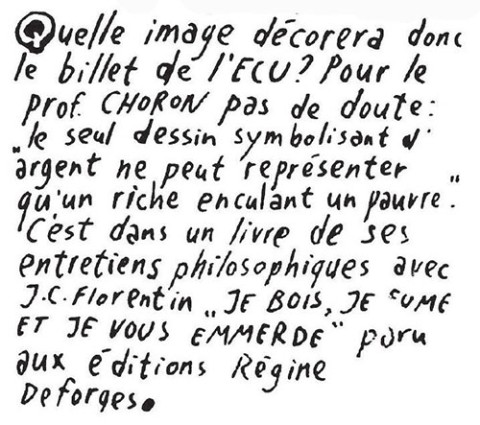 Quelle image décorera donc
le billet de l'ECU? Pour le
prof. CHORON pas de doute:
„le seul dessin symbolisant l'
argent ne peut représenter
qu'un riche enculant un pauvre."
C'est dans un livre de ses
entretiens philosophiques avec
J.C. Florentin „JE BOIS, JE FUME
ET JE VOUS EMMERDE" paru
aux éditions Régine
Deforges.